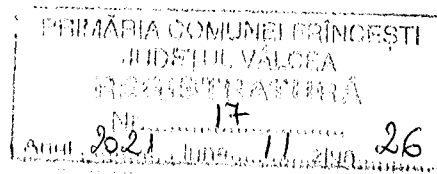 PRIMĂRIA COMUNEI FRÎNCEȘTI
JUDEȚUL VÂLCEA
REGISTRATURĂ
Nr. 17
Anul 2021 luna 11 ziua 26